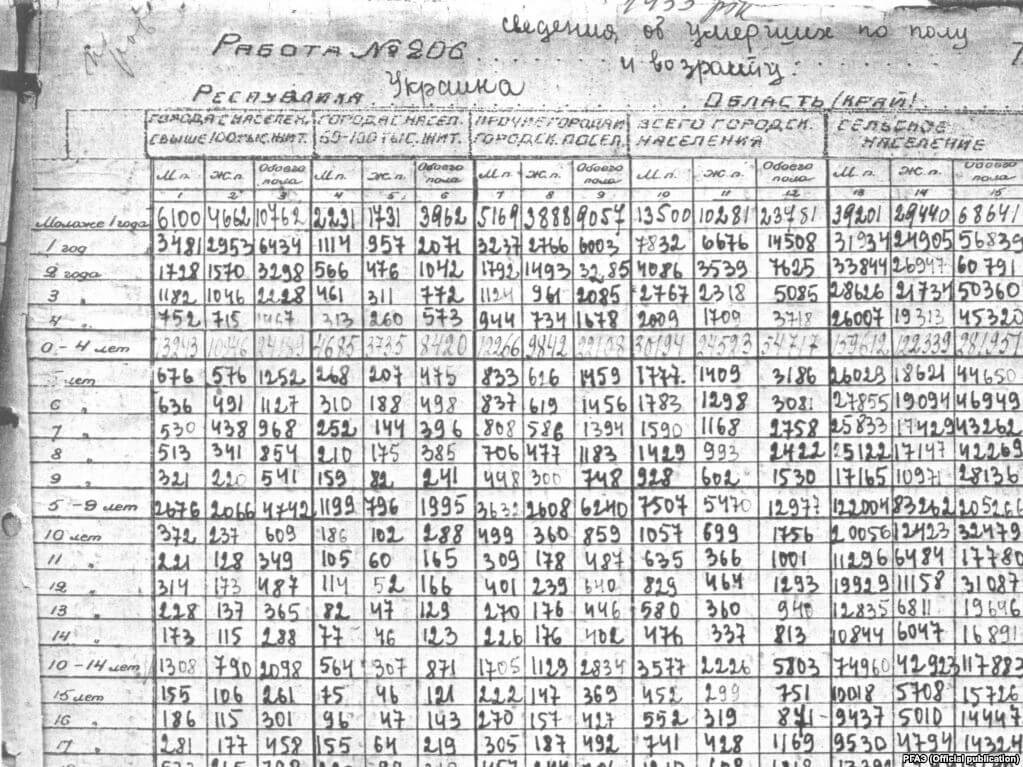 1933
РАБОТА № 206 сведения об умерших по полу
и возрасту.
РЕСПУБЛИКА Украина ОБЛАСТЬ /КРАЙ/
ГОРОДА С НАСЕЛЕН. ГОРОДА С НАСЕЛ. ПРОЧИЕ ГОРОДА И ВСЕГО ГОРОДСК. СЕЛЬСКОЕ
СВЫШЕ 100 ТЫС. ЖИТ. 50-100 ТЫС. ЖИТ. ГОРОДСК. ПОСЕЛ. НАСЕЛЕНИЯ НАСЕЛЕНИЕ
М.п. Ж.п. Обоего пола М.п. Ж.п. Обоего пола М.п. Ж.п. Обоего пола М.п. Ж.п. Обоего пола М.п. Ж.п. Обоего пола
1 2 3 4 5 6 7 8 9 10 11 12 13 14 15
Моложе 1 года 6100 4662 10762 2231 1731 3962 5169 3888 9057 13500 10281 23781 39201 29440 68641
1 год 3481 2953 6434 1114 957 2071 3237 2766 6003 7832 6676 14508 31934 24905 56839
2 года 1728 1570 3298 566 476 1042 1792 1493 3285 4086 3539 7625 33844 26947 60791
3 " 1182 1046 2228 461 311 772 1124 961 2085 2767 2318 5085 28626 21734 50360
4 " 752 715 1467 313 260 573 944 734 1678 2009 1709 3718 26007 19313 45320
0-4 лет 13243 10946 24189 4685 3735 8420 12266 9842 22108 30194 24523 54717 159612 122339 281951
5 лет 676 576 1252 268 207 475 833 626 1459 1777 1409 3186 26029 18621 44650
6 " 636 491 1127 310 188 498 837 619 1456 1783 1298 3081 27855 19094 46949
7 " 530 438 968 252 144 396 808 586 1394 1590 1168 2758 25833 17429 43262
8 " 513 341 854 210 175 385 706 477 1183 1429 993 2422 25122 17147 42269
9 " 321 220 541 159 82 241 448 300 748 928 602 1530 17165 10971 28136
5-9 лет 2676 2066 4742 1199 796 1995 3632 2608 6240 7507 5470 12977 122004 83262 205266
10 лет 372 237 609 186 102 288 499 360 859 1057 699 1756 20056 12423 32479
11 " 221 128 349 105 60 165 309 178 487 635 366 1001 11296 6484 17780
12 " 314 173 487 114 52 166 401 239 640 829 464 1293 19929 11158 31087
13 " 228 137 365 82 47 129 270 176 446 580 360 940 12835 6811 19646
14 " 173 115 288 77 46 123 226 176 402 476 337 813 10844 6047 16891
10-14 лет 1308 790 2098 564 307 871 1705 1129 2834 3577 2226 5803 74960 42923 117883
15 лет 155 106 261 75 46 121 222 147 369 452 299 751 10018 5708 15726
16 " 186 115 301 96 47 143 270 157 427 552 319 871 9437 5010 14447
17 " 281 177 458 155 64 219 305 187 492 741 428 1169 9530 4794 14324
РГАЭ (Official publication)